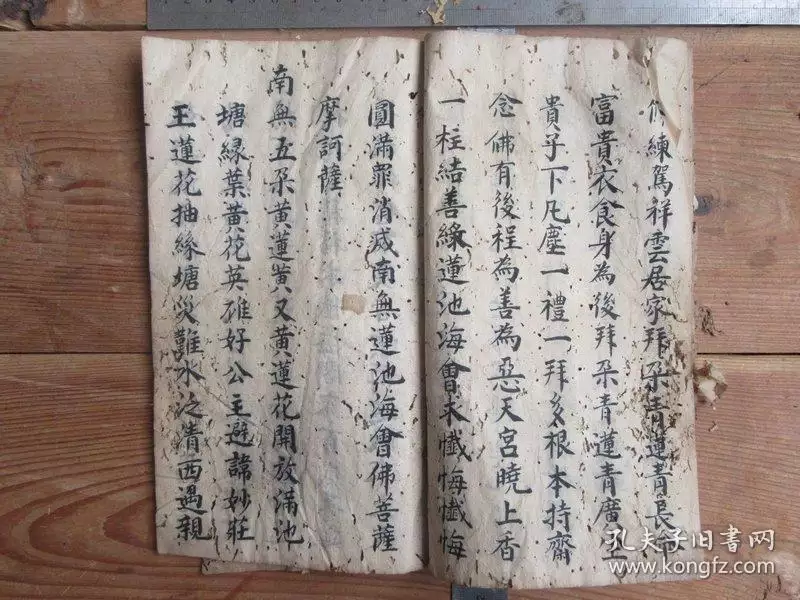 修練駕祥雲居家拜朶青蓮青長命
富貴衣食身為後拜朶青蓮青廣
貴子下凡塵一禮一拜多根本持齋
念佛有後程為善為惡天宮曉上香
一柱結善緣蓮池海會来懺悔懺悔
圓滿罪消滅南無蓮池海會佛菩薩
摩訶薩
南無五朶黃蓮黃又黃蓮花開放滿池
塘緑葉黃花英雄好公主避諱妙莊
王蓮花抽絲塘災難水泛清西遇親
孔夫子旧书网
www.kongfz.com